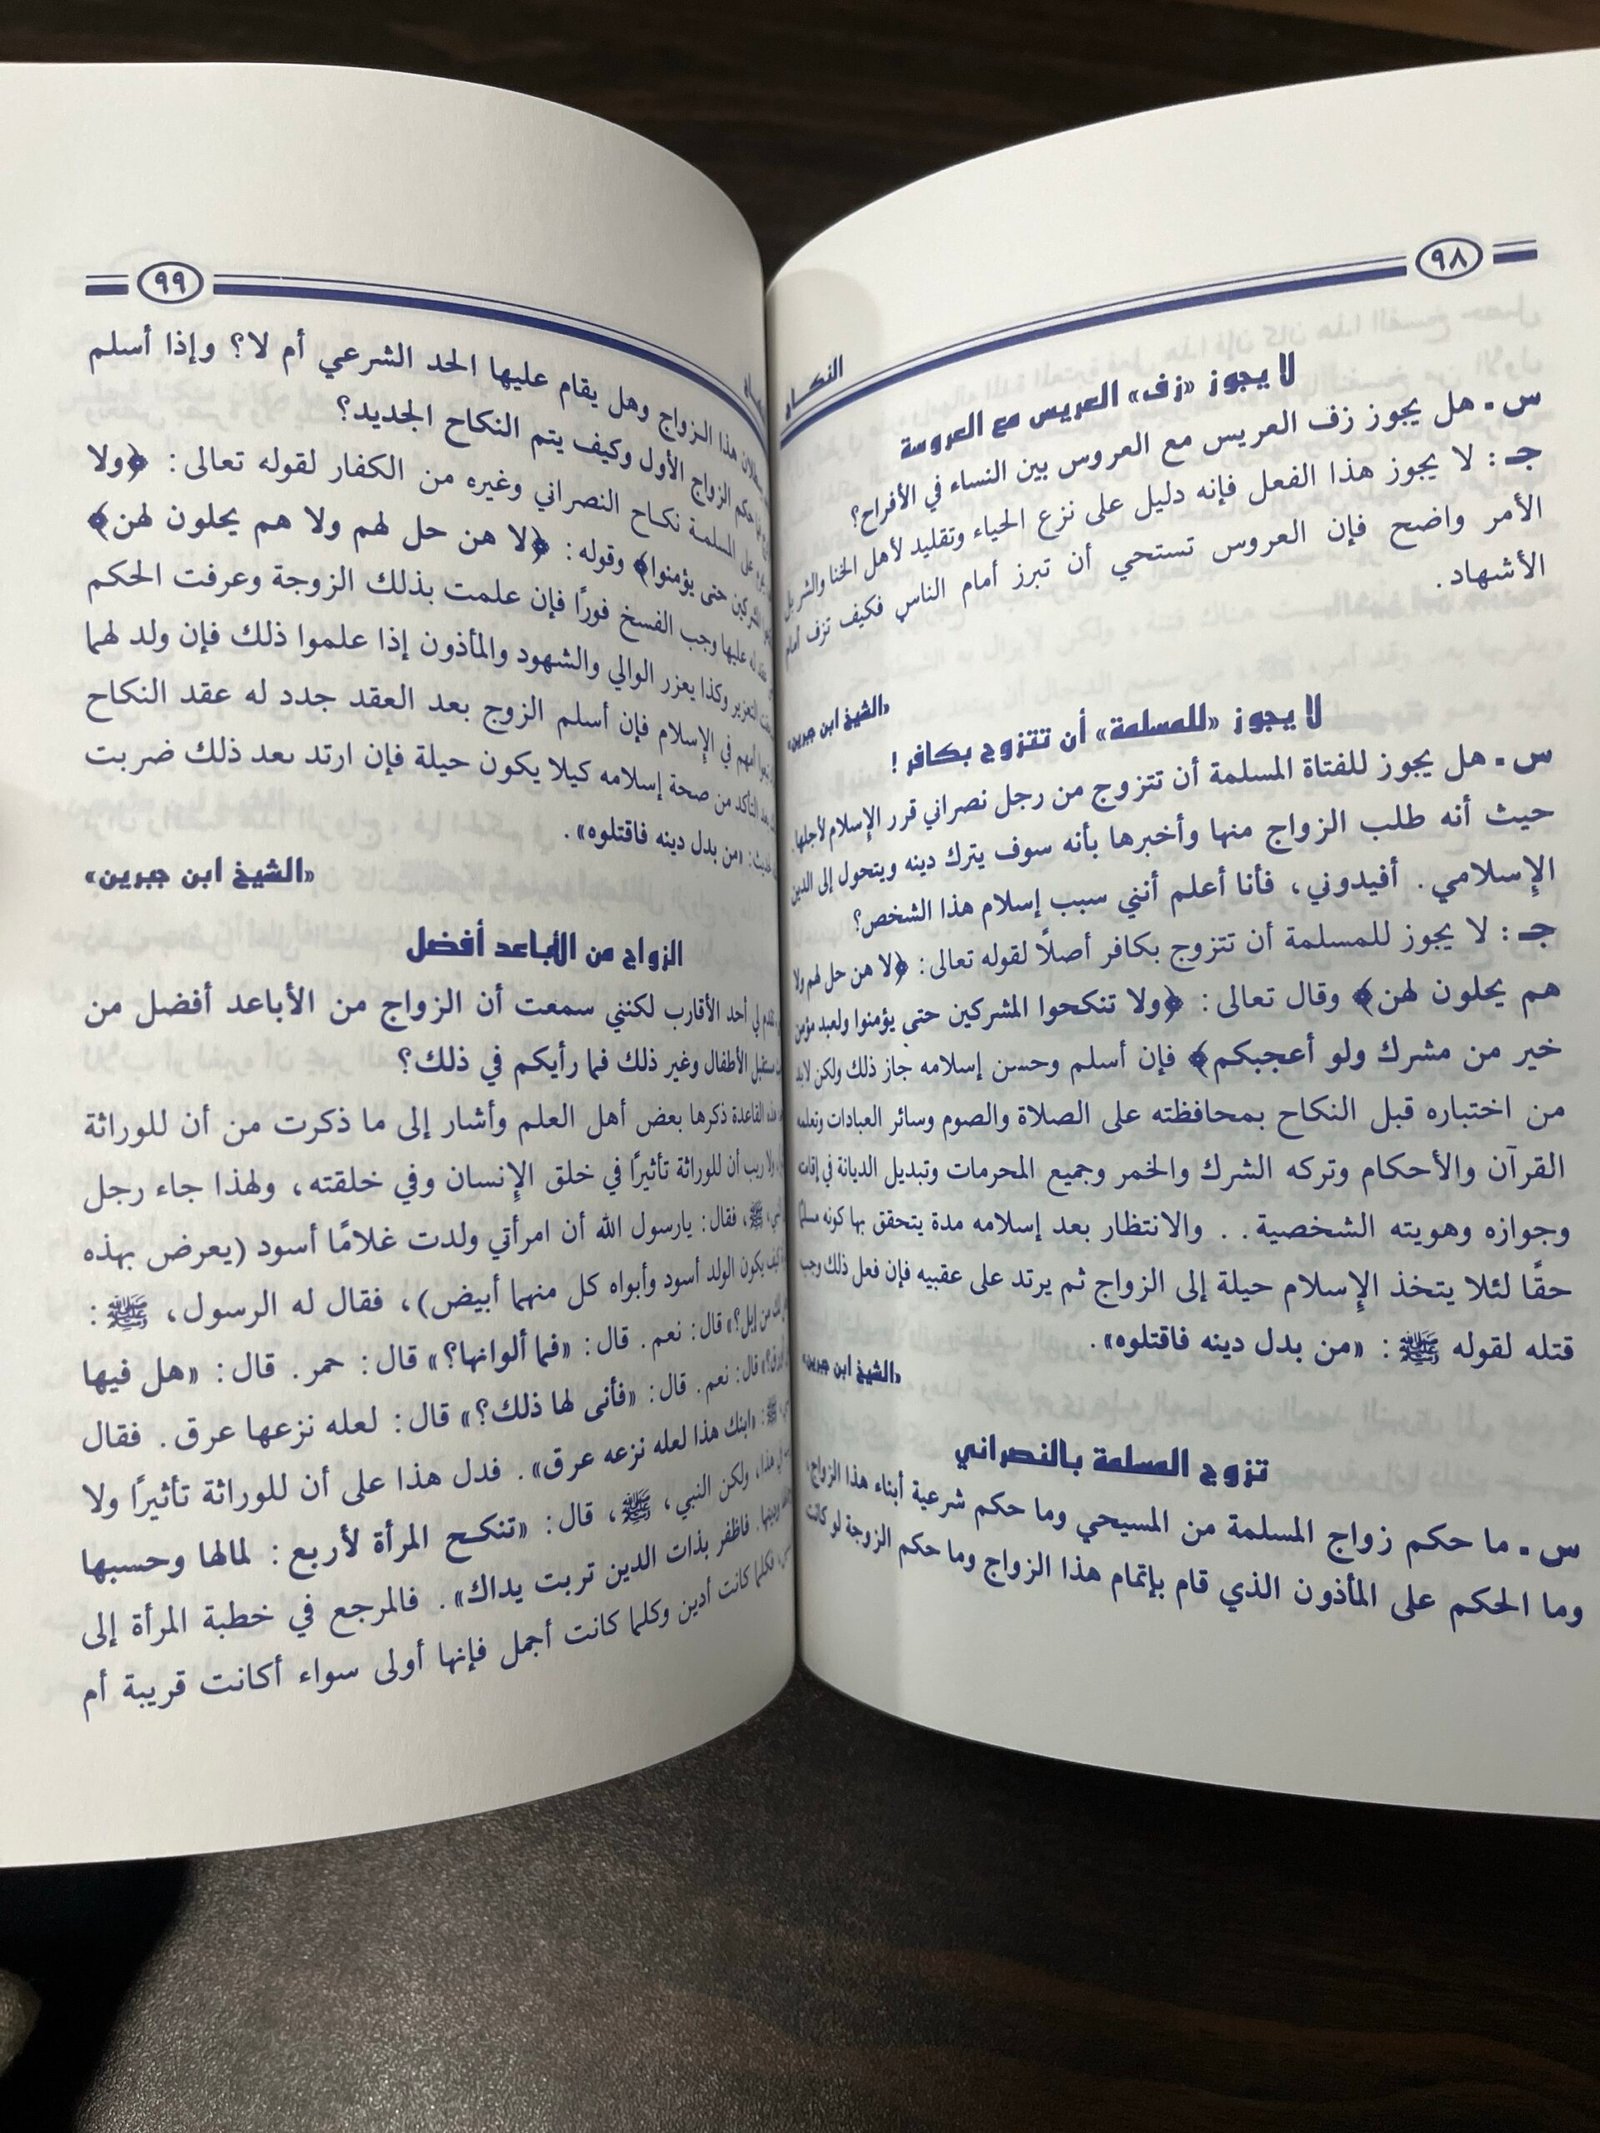 ٩٨
النكاح
لا يجوز «زف» العريس مع العروسة
س ـ هل يجوز زف العريس مع العروس بين النساء في الأفراح؟
جـ : لا يجوز هذا الفعل فإنه دليل على نزع الحياء وتقليد لأهل الخنا والشر بل
الأمر واضح فإن العروس تستحي أن تبرز أمام الناس فكيف تزف أمام
الأشهاد .
«الشيخ ابن جبرين»
لا يجوز «للمسلمة» أن تتزوج بكافر !
س ـ هل يجوز للفتاة المسلمة أن تتزوج من رجل نصراني قرر الإسلام لأجلها.
حيث أنه طلب الزواج منها وأخبرها بأنه سوف يترك دينه ويتحول إلى الدين
الإسلامي . أفيدوني، فأنا أعلم أنني سبب إسلام هذا الشخص؟
جـ : لا يجوز للمسلمة أن تتزوج بكافر أصلًا لقوله تعالى: ﴿لا هن حل لهم ولا
هم يحلون لهن﴾ وقال تعالى: ﴿ولا تنكحوا المشركين حتى يؤمنوا ولعبد مؤمن
خير من مشرك ولو أعجبكم﴾ فإن أسلم وحسن إسلامه جاز ذلك ولكن لابد
من اختباره قبل النكاح بمحافظته على الصلاة والصوم وسائر العبادات وتعلمه
القرآن والأحكام وتركه الشرك والخمر وجميع المحرمات وتبديل الديانة في إقامته
وجوازه وهويته الشخصية . . والانتظار بعد إسلامه مدة يتحقق بها كونه مسلمًا
حقًا لئلا يتخذ الإسلام حيلة إلى الزواج ثم يرتد على عقبيه فإن فعل ذلك وجب
قتله لقوله ﷺ : «من بدل دينه فاقتلوه».
«الشيخ ابن جبرين»
تزوج المسلمة بالنصراني
س ـ ما حكم زواج المسلمة من المسيحي وما حكم شرعية أبناء هذا الزواج،
وما الحكم على المأذون الذي قام بإتمام هذا الزواج وما حكم الزوجة لو كانت
٩٩
هذا الزواج وهل يقام عليها الحد الشرعي أم لا؟ وإذا أسلم
حكم الزواج الأول وكيف يتم النكاح الجديد؟
على المسلمة نكاح النصراني وغيره من الكفار لقوله تعالى: ﴿ولا
المشركين حتى يؤمنوا﴾ وقوله: ﴿لا هن حل لهم ولا هم يحلون لهن﴾
عليها وجب الفسخ فورًا فإن علمت بذلك الزوجة وعرفت الحكم
التعزير وكذا يعزر الوالي والشهود والمأذون إذا علموا ذلك فإن ولد لهما
أمهم في الإسلام فإن أسلم الزوج بعد العقد جدد له عقد النكاح
بعد التأكد من صحة إسلامه كيلا يكون حيلة فإن ارتد بعد ذلك ضربت
حديث: «من بدل دينه فاقتلوه» .
«الشيخ ابن جبرين»
الزواج من الأباعد أفضل
تقدم لي أحد الأقارب لكنني سمعت أن الزواج من الأباعد أفضل من
مستقبل الأطفال وغير ذلك فما رأيكم في ذلك؟
هذه القاعدة ذكرها بعض أهل العلم وأشار إلى ما ذكرت من أن للوراثة
ولا ريب أن للوراثة تأثيرًا في خلق الإنسان وفي خلقته، ولهذا جاء رجل
ﷺ، فقال: يارسول الله أن امرأتي ولدت غلامًا أسود (يعرض بهذه
كيف يكون الولد أسود وأبواه كل منهما أبيض)، فقال له الرسول، ﷺ :
لك من إبل؟» قال: نعم. قال: «فما ألوانها؟» قال: حمر. قال: «هل فيها
قال: نعم. قال: «فأنى لها ذلك؟» قال: لعله نزعها عرق. فقال
ﷺ: «ابنك هذا لعله نزعه عرق» . فدل هذا على أن للوراثة تأثيرًا ولا
هذا، ولكن النبي، ﷺ، قال: «تنكح المرأة لأربع : لمالها وحسبها
ودينها. فاظفر بذات الدين تربت يداك» . فالمرجع في خطبة المرأة إلى
فكلما كانت أدين وكلما كانت أجمل فإنها أولى سواء أكانت قريبة أم